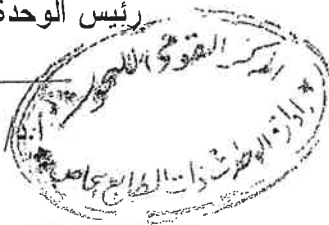 رئيس الوحدة
المركز القومى للبحوث
أ.د/
إدارة الوحدات ذات الطابع الخاص